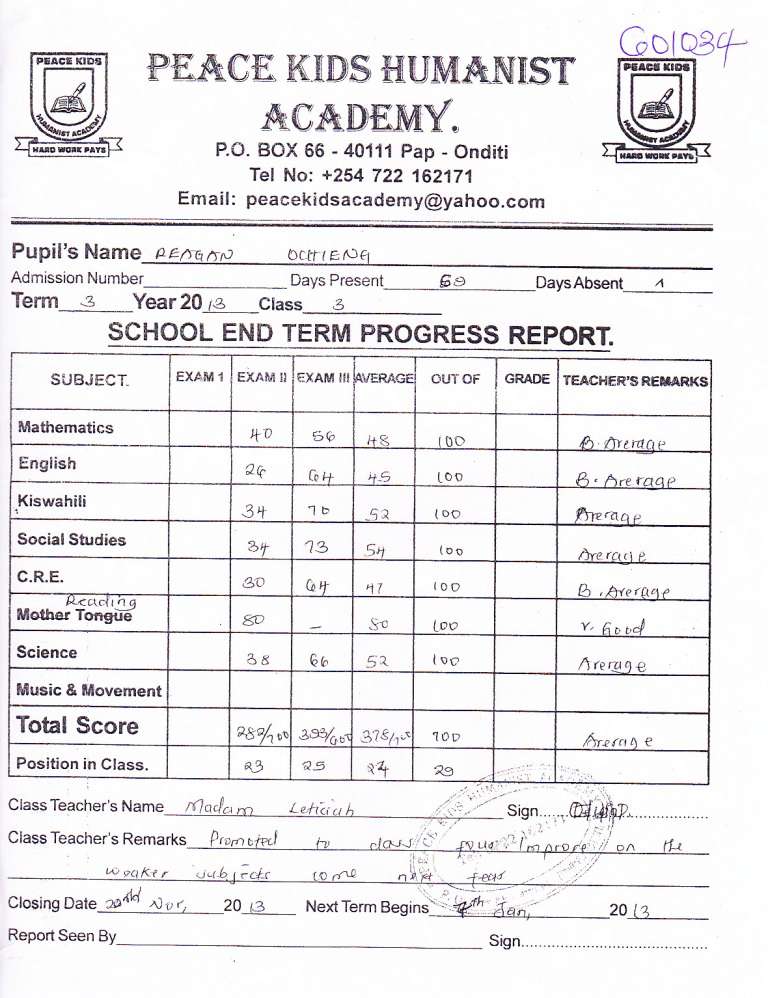 G01034
PEACE KIDS HUMANIST
ACADEMY.
PEACE KIDS
HUMANIST ACADEMY
HARD WORK PAYS
PEACE KIDS
HUMANIST ACADEMY
HARD WORK PAYS
P.O. BOX 66 - 40111 Pap - Onditi
Tel No: +254 722 162171
Email: peacekidsacademy@yahoo.com
Pupil's Name REAGAN OCHIENG
Admission Number Days Present 69 Days Absent 1
Term 3 Year 2013 Class 3
SCHOOL END TERM PROGRESS REPORT.
SUBJECT. EXAM 1 EXAM II EXAM III AVERAGE OUT OF GRADE TEACHER'S REMARKS
Mathematics 40 56 48 100 B. Average
English 26 64 45 100 B. Average
Kiswahili 34 70 52 100 Average
Social Studies 34 73 54 100 Average
C.R.E. 30 64 47 100 B. Average
Reading
Mother Tongue 80 — 80 100 V. Good
Science 38 66 52 100 Average
Music & Movement
Total Score 282/700 393/600 378/700 700 Average
Position in Class. 23 25 24 29
Class Teacher's Name Madam Leticiah Sign....
Class Teacher's Remarks Promoted to class four Improve on the
weaker subjects come next year
Closing Date Nov, 2013 Next Term Begins 7th Jan, 2013
Report Seen By Sign.......................................